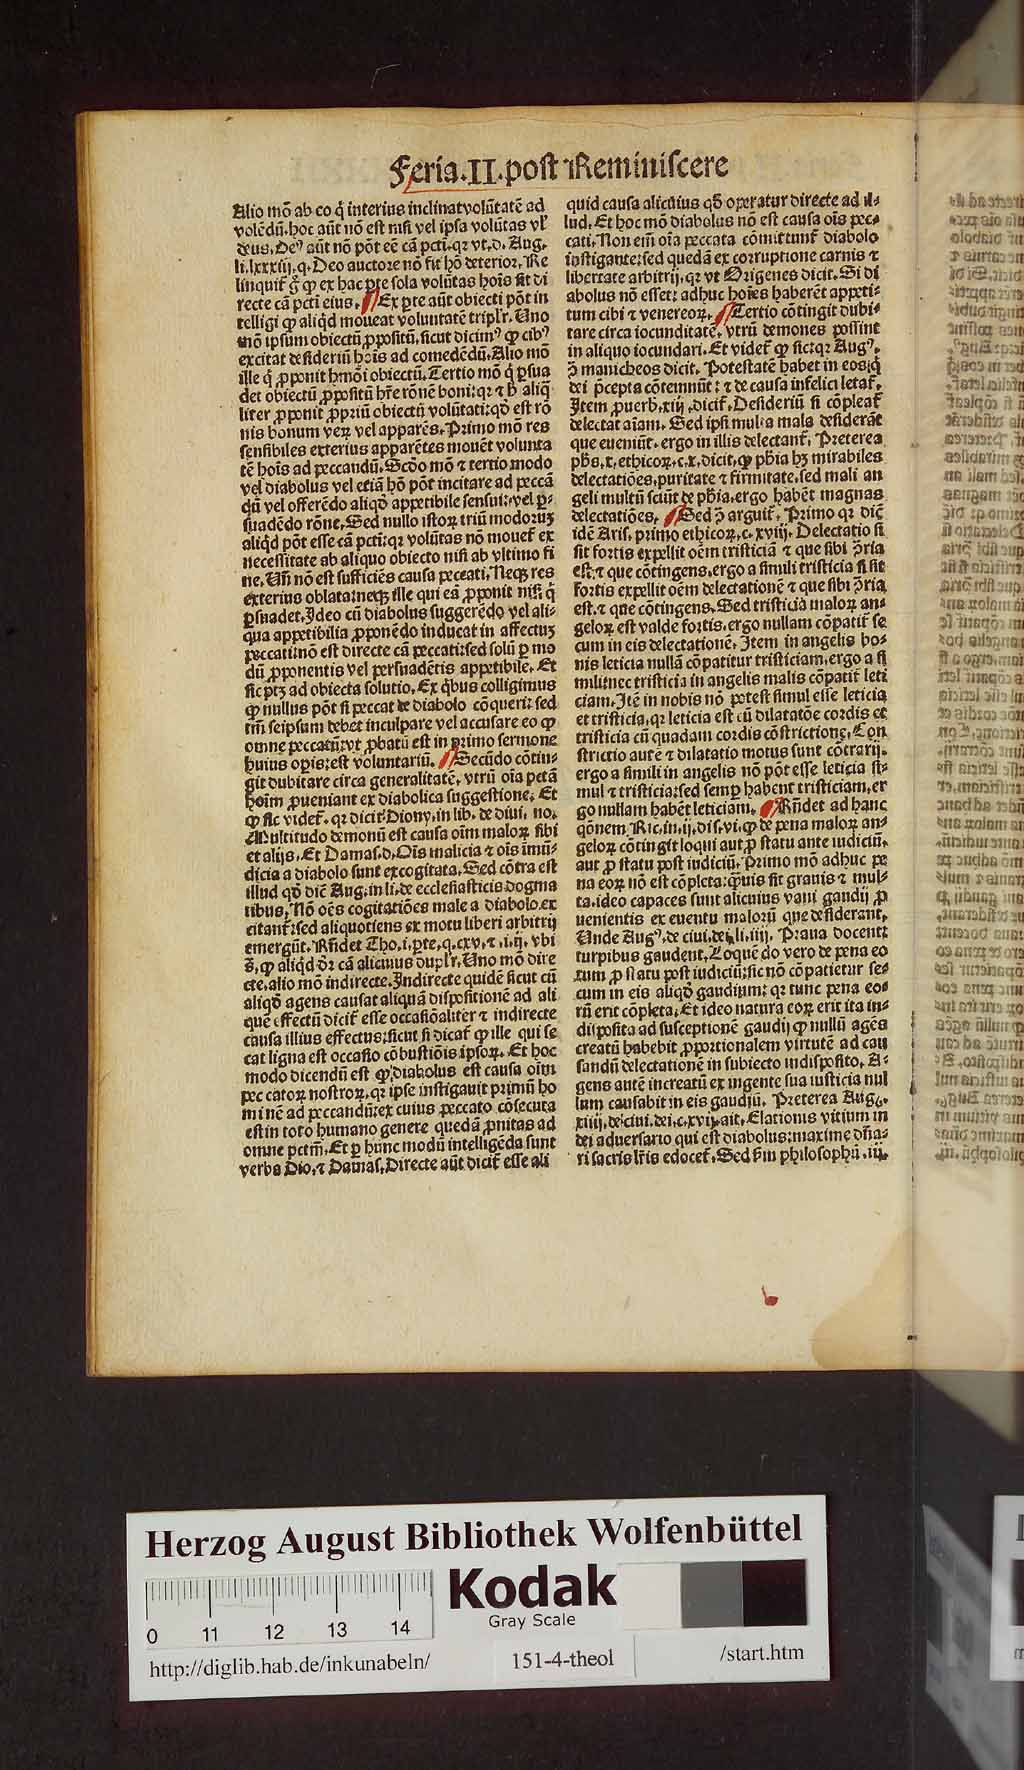 Feria.II.post Reminiscere
Alio mō ab eo q̄ interius inclinat volūtatē ad
volēdū.hoc aūt nō est nisi vel ipsa volūtas vl'
deus. Deꝰ aūt nō pōt eē cā pcti.qꝛ vt.d. Aug.
li.lxxxiij.q. Deo auctore nō fit hō deterior. Re
linquit̄ g̊ ꝙ ex hac pte sola volūtas hoīs sit di
recte cā pcti eius. Ex pte aūt obiecti pōt in
telligi ꝙ aliqd moueat voluntatē triplr. Uno
mō ipsum obiectū ꝓpositū.sicut dicimꝰ ꝙ cibꝰ
excitat desideriū hoīs ad comedēdū. Alio mō
ille q̄ ꝓponit hmōi obiectū. Tertio mō q̄ psua
det obiectū ꝓpositū hr̄e rōnē boni:qꝛ ⁊ h̄ aliq̄
liter ꝓponit ꝓpriū obiectū volūtati:qd̄ est rō
nis bonum veꝝ vel apparēs. Primo mō res
sensibiles exterius apparētes mouēt volunta
tē hoīs ad peccandū. Scd̄o mō ⁊ tertio modo
vel diabolus vel etiā hō pōt incitare ad peccā
dū vel offerēdo aliqd̄ appetibile sensui:vel p̱
suadēdo rōne. Sed nullo istoꝝ triū modoruꝫ
aliqd pōt esse cā pcti:qꝛ volūtas nō mouet̄ ex
necessitate ab aliquo obiecto nisi ab vltimo fi
ne. Un̄ nō est sufficiēs causa peccati. Neqꝫ res
exterius oblata:neqꝫ ille qui eā ꝓponit nisi q̄
p̱suadet. Ideo cū diabolus suggerēdo vel ali-
qua appetibilia ꝓponēdo inducat in affectuꝫ
peccati:nō est directe cā peccati:sed solū p̱ mo
dū ꝓponentis vel persuadētis appetibile. Et
sic ptꝫ ad obiecta solutio. Ex qb̄us colligimus
ꝙ nullus pōt si peccat de diabolo cōqueri: sed
tm̄ seipsum debet inculpare vel accusare eo ꝙ
omne peccatū:vt ꝓbatū est in primo sermone
huius opis:est voluntariū. Secūdo cōtin-
git dubitare circa generalitatē. vtrū oīa pctā
hoīm ꝓueniant ex diabolica suggestione. Et
ꝙ sic videt̄. qꝛ dicit Diony.in lib. de diui. no.
Multitudo demonū est causa oīm maloꝝ sibi
et alijs. Et Damas.d. Ois malicia ⁊ ois imū-
dicia a diabolo sunt excogitata. Sed cōtra est
illud qd̄ dic̄ Aug.in li.de ecclesiasticis dogma
tibus. Nō oēs cogitatiōes male a diabolo.ex
citant̄:sed aliquotiens ex motu liberi arbitrij
emergūt. Rn̄det Tho.i.pte.q.cxv.⁊.i.ij. vbi
s̄. ꝙ aliqd dr̄ cā alicuius duplr. Uno mō dire
cte.alio mō indirecte. Indirecte quidē sicut cū
aliqd̄ agens causat aliquā dispositionē ad ali
quē effectū dicit̄ esse occasiōaliter ⁊ indirecte
causa illius effectus:sicut si dicat̄ ꝙ ille qui se
cat ligna est occasio cōbustiōis ipsoꝝ. Et hoc
modo dicendū est ꝙ diabolus est causa oīm
peccatoꝝ nostroꝝ.qꝛ ipse instigauit primū ho
minē ad peccandū:ex cuius peccato cōsecuta
est in toto humano genere quedā ꝓnitas ad
omne pctm̄. Et p̱ hunc modū intelligēda sunt
verba Dio.⁊ Damas. Directe aūt dicit̄ esse ali
quid causa alicuius qd̄ operatur directe ad il-
lud. Et hoc mō diabolus nō est causa ois pec-
cati. Non em̄ oīa peccata cōmittunt̄ diabolo
instigante:sed quedā ex corruptione carnis ⁊
libertate arbitrij.qꝛ vt Origenes dicit. Si di
abolus nō esset: adhuc hoīes haberēt appeti-
tum cibi ⁊ venereoꝝ. Tertio cōtingit dubi-
tare circa iocunditatē. vtrū demones possint
in aliquo iocundari. Et videt̄ ꝙ sic:qꝛ Augꝰ.
ꝯ̄ manicheos dicit. Potestatē habet in eos:q̄
dei p̄cepta cōtemnūt: ⁊ de causa infelici letat̄.
Item ꝓuerb.xiij.dicit̄. Desideriū si cōpleat̄
delectat aīam. Sed ipsi multa mala desiderāt
que eueniūt.ergo in illis delectant̄. Preterea
phs̄.x.ethicoꝝ.c.x.dicit.ꝙ phīa hꝫ mirabiles
delectatiōes.puritate ⁊ firmitate.sed mali an
geli multū sciūt de phīa.ergo habēt magnas
delectatiōes. Sed ꝯ̄ arguit̄. Primo qꝛ dic̄
idē Aris. primo ethicoꝝ.c.xviij. Delectatio si
sit fortis expellit oēm tristiciā ⁊ que sibi ꝯ̄ria
est:⁊ que cōtingens.ergo a simili tristicia si sit
fortis expellit oēm delectationē ⁊ que sibi ꝯ̄ria
est.⁊ que cōtingens. Sed tristicia maloꝝ an-
geloꝝ est valde fortis.ergo nullam cōpatit̄ se
cum in eis delectationē. Item in angelis bo-
nis leticia nullā cōpatitur tristiciam.ergo a si
mili:nec tristicia in angelis malis cōpatit̄ leti
ciam. Itē in nobis nō potest simul esse leticia
et tristicia.qꝛ leticia est cū dilatatōe cordis et
tristicia cū quadam cordis cōstrictione. Con
strictio autē ⁊ dilatatio motus sunt cōtrarij.
ergo a simili in angelis nō pōt esse leticia si-
mul ⁊ tristicia:sed semp̱ habent tristiciam.er
go nullam habēt leticiam. Rn̄det ad hanc
qōnem Ric.in.ij.dis.vi.ꝙ de pena maloꝝ an-
geloꝝ cōtingit loqui aut ꝓ statu ante iudiciū.
aut ꝓ statu post iudiciū. Primo mō adhuc pe
na eoꝝ nō est cōpleta:qᷓuis sit grauis ⁊ mul-
ta.ideo capaces sunt alicuius vani gaudij ꝓ
uenientis ex euentu malorū que desiderant.
Unde Augꝰ.de ciui.dei.li.iiij. Praua docent:
turpibus gaudent. Loquēdo vero de pena eo
rum ꝓ statu post iudiciū:sic nō cōpatietur se-
cum in eis aliqd̄ gaudium: qꝛ tunc pena eo-
rū erit cōpleta. Et ideo natura eoꝝ erit ita in-
disposita ad susceptionē gaudij ꝙ nullū agēs
creatū habebit ꝓportionalem virtutē ad cau
sandū delectationē in subiecto indisposito. A-
gens autē increatū ex ingente sua iusticia nul
lum causabit in eis gaudiū. Preterea Augꝰ.
xiiij.de ciui.dei.c.xvij.ait. Elationis vitium in
dei aduersario qui est diabolus:maxime dn̄a-
ri sacris lr̄is edocet̄. Sed sm̄ philosophū.iij.
Herzog August Bibliothek Wolfenbüttel
Kodak
Gray Scale
0 11 12 13 14
http://diglib.hab.de/inkunabeln/ 151-4-theol /start.htm